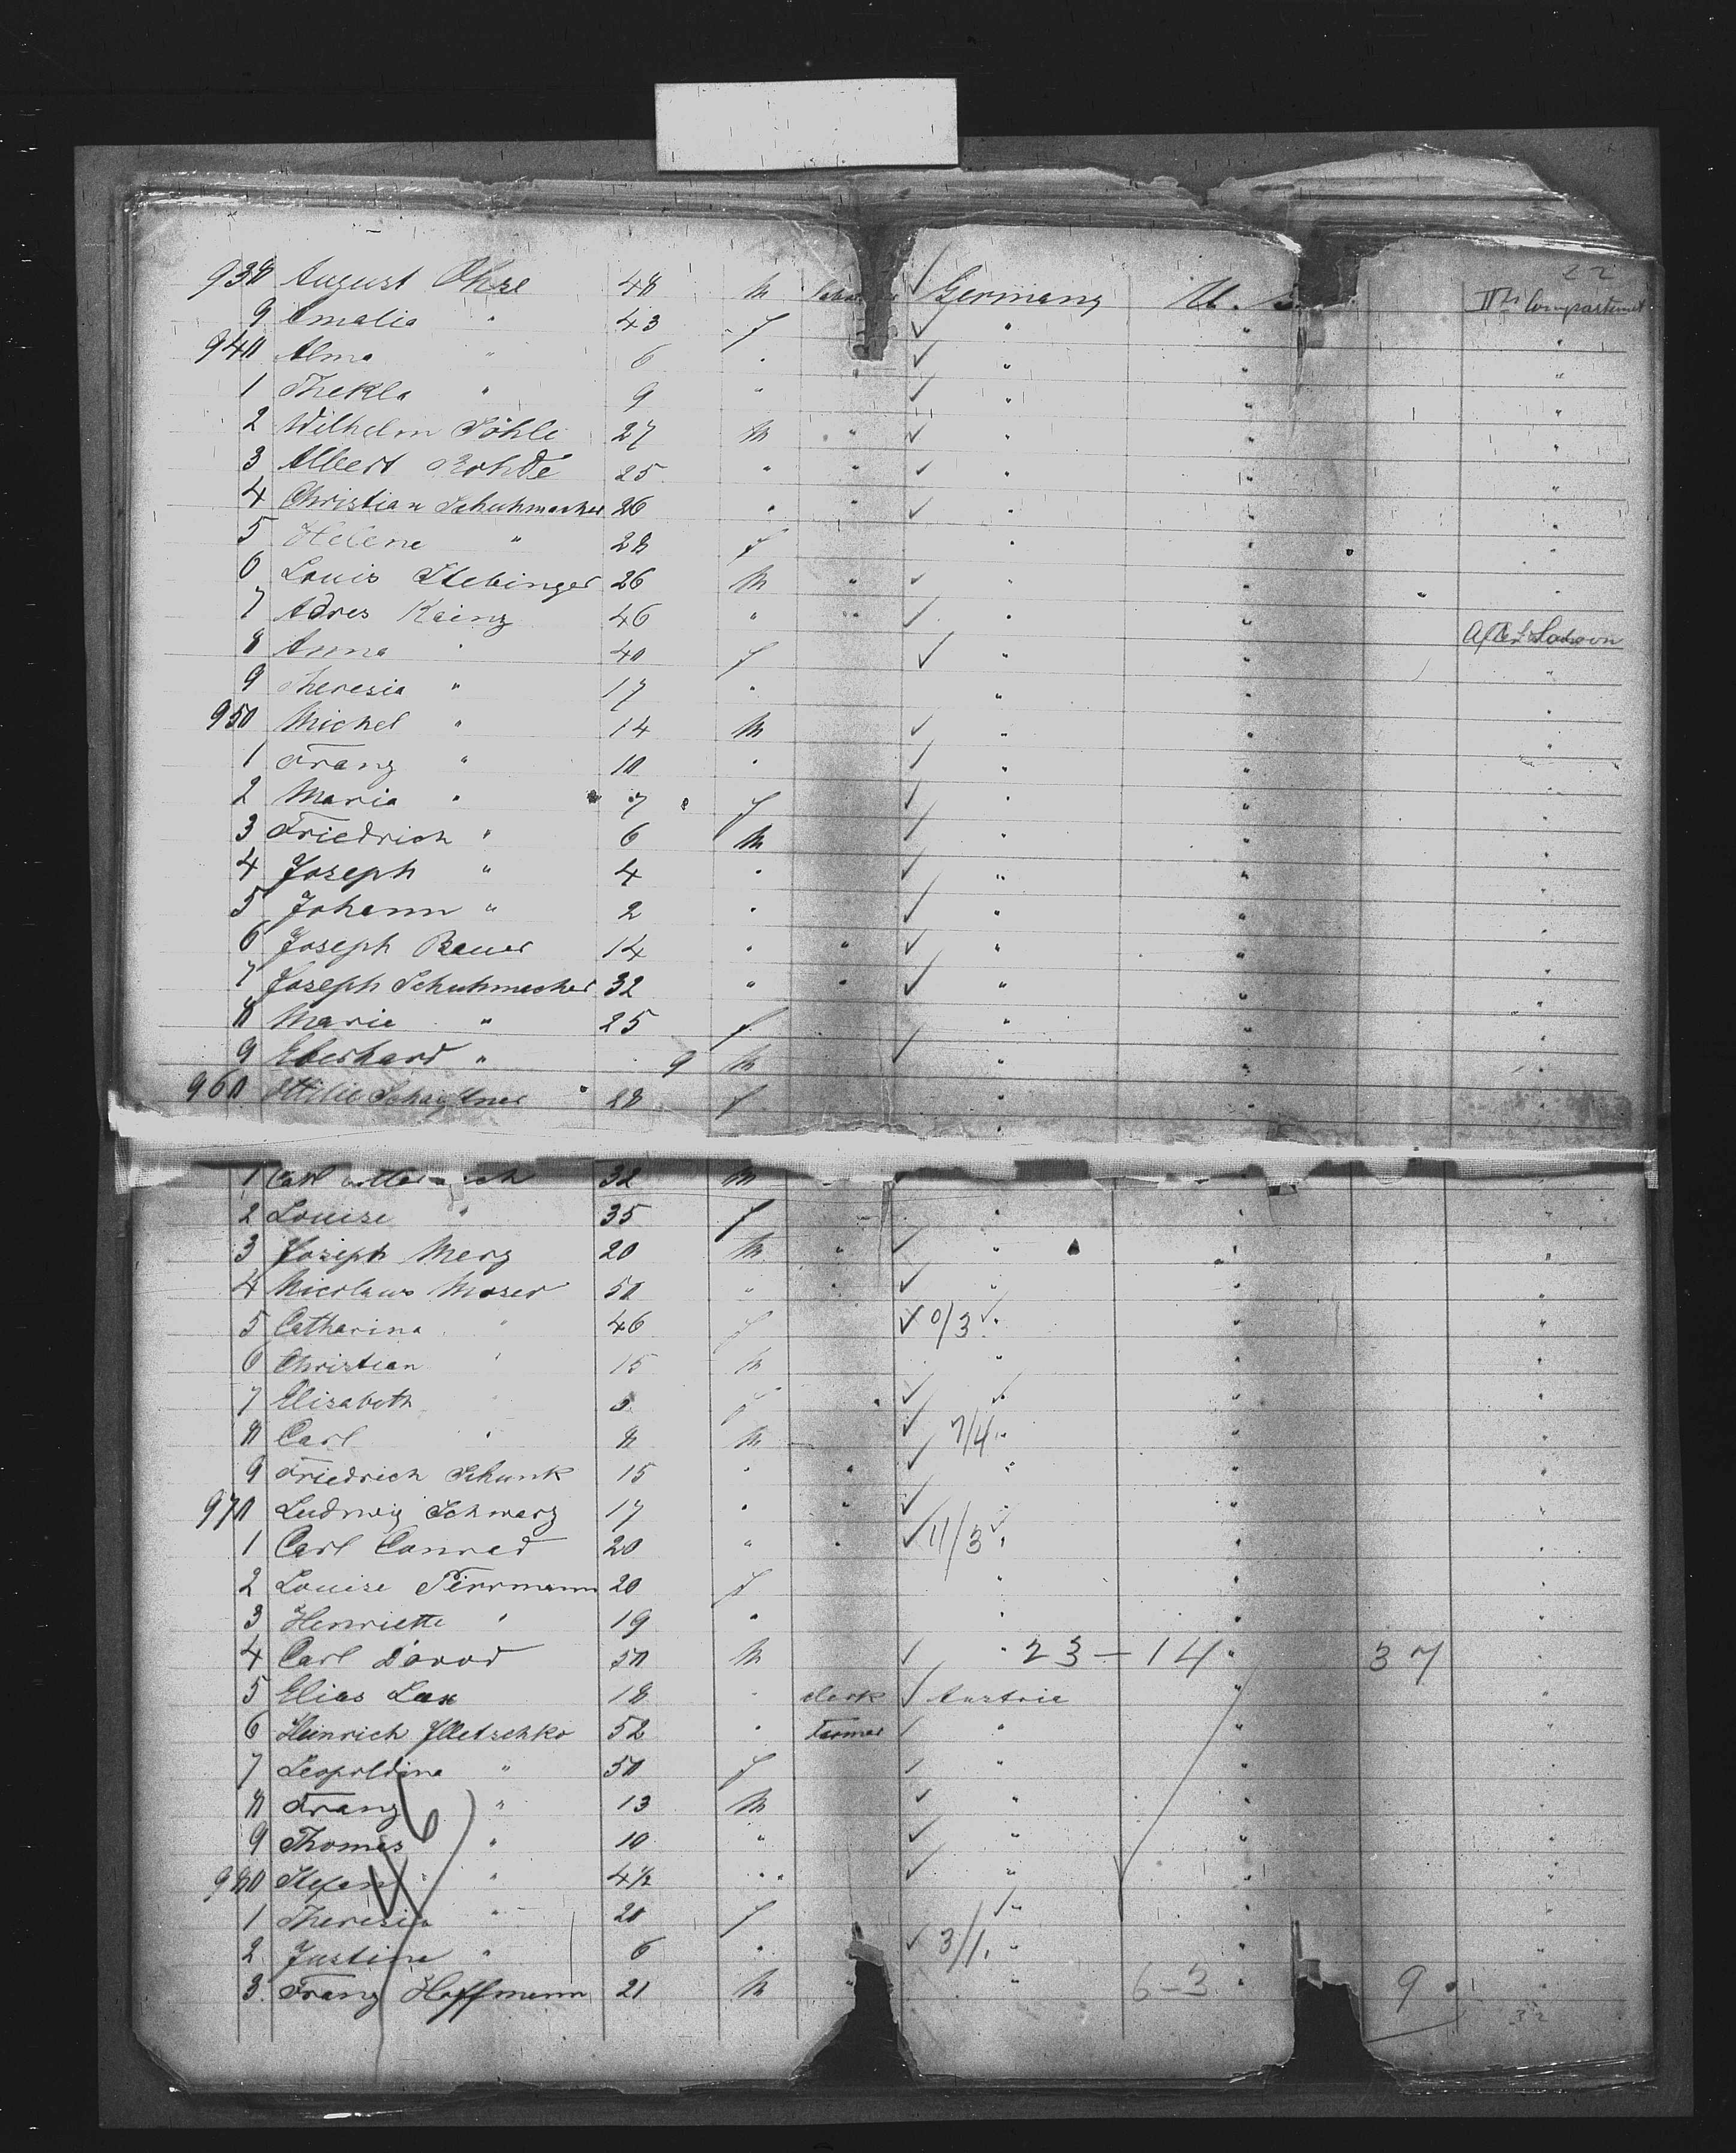 22
938 August Ohse 48 m Germany U. IIth Compartment
9 Amalia " 43 f " " "
940 Alma " 6 " " " "
1 Thekla " 9 " " " "
2 Wilhelm Söhle 27 m " " " "
3 Albert Rohde 25 " " " " "
4 Christian Schuhmacher 26 " " " " "
5 Helene " 28 f " " "
6 Louis Stebinger 26 m " " " "
7 Adres Kainz 46 " " " " After Saloon
8 Anna " 40 f " " "
9 Theresia " 17 " " " "
950 Michel " 14 m " " "
1 Franz " 10 " " " "
2 Maria " 7 f " " "
3 Friedrich " 6 m " " "
4 Joseph " 4 " " " "
5 Johann " 2 " " " "
6 Joseph Bauer 14 " " " " "
7 Joseph Schuhmacher 32 " " " " "
8 Marie " 25 f " " "
9 Eberhard " 9 m " " "
960 Ottilie 28 f " " "
1 Carl 32 m
2 Louise " 35 f " " "
3 Joseph Merz 20 m " " " "
4 Nicolaus Moser 50 " " " " "
5 Catharina " 46 f 0/3 " " "
6 Christian " 15 m " " "
7 Elisabeth " f " "
8 Carl " 8 m 7/4 " " "
9 Friedrich Schunk 15 " " " " "
970 Ludwig Schwarz 17 " " " " "
1 Carl Conrad 20 " " 11/3 " " "
2 Louise Perrmann 20 f " " "
3 Henriette " 19 " " " "
4 Carl David 50 m " 23-14 " 37
5 Elias Lax 18 " clerk Austria " "
6 Heinrich 52 " Farmer " " "
7 Leopoldina " 50 f " " "
8 Franz " 13 m " " "
9 Thomas " 10 " " " "
980 Stefan " 4½ " " " "
1 Theresia " 20 f " " "
2 Justine " 6 " 3/1 " " "
3 Franz Hoffmann 21 m " " 6-3 " 9 "
32